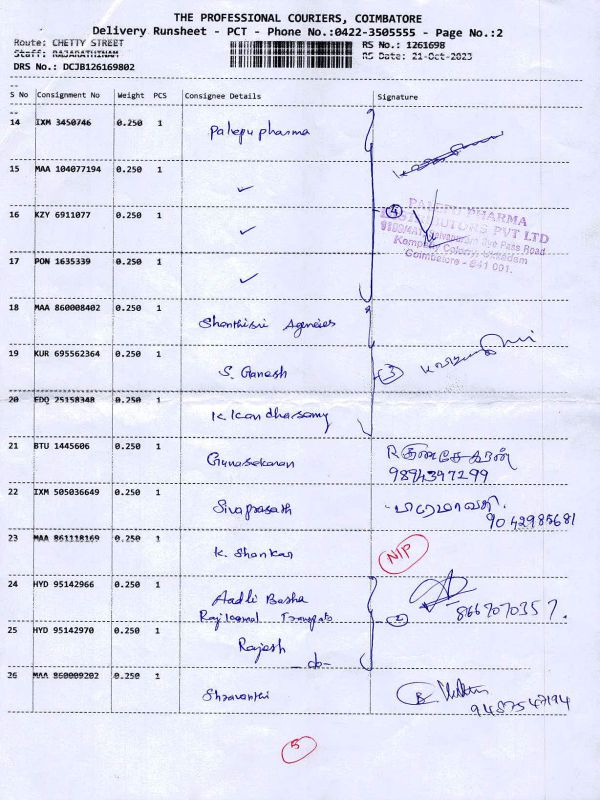 THE PROFESSIONAL COURIERS, COIMBATORE
Delivery Runsheet - PCT - Phone No.:0422-3505555 - Page No.:2
Route: CHETTY STREET
RS No.: 1261698
Staff: RAJARATHINAM
RS Date: 21-Oct-2023
DRS No.: DCJB126169802
S No Consignment No Weight PCS Consignee Details Signature
14 IXM 3450746 0.250 1 Palepu pharma
15 MAA 104077194 0.250 1 ✓
16 KZY 6911077 0.250 1 ✓ 4
PALEPU PHARMA
DISTRIBUTORS PVT LTD
Bye Pass Road
Colony, Ukkadam
Coimbatore - 641 001.
17 PON 1635339 0.250 1 ✓
18 MAA 860008402 0.250 1 Shanthisri Agencies
19 KUR 695562364 0.250 1 S. Ganesh 3
20 EDQ 25158348 0.250 1 K. Kandhasamy
21 BTU 1445606 0.250 1 Gunasekaran
9894397299
22 IXM 505036649 0.250 1 Sivaprasath
9042985681
23 MAA 861118169 0.250 1 K. Shankar N/P
24 HYD 95142966 0.250 1 Aadli Basha
Transpots 2 8667070357.
25 HYD 95142970 0.250 1 Rajesh
-do-
26 MAA 860009202 0.250 1 Shravanthi
9487547194
5